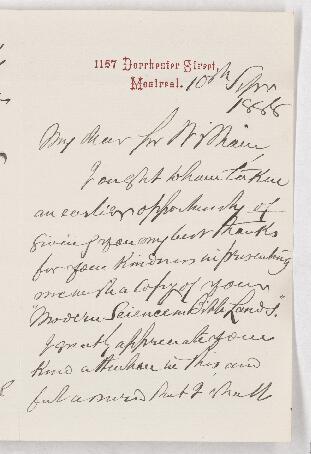 1157 Dorchester Street,
Montreal. 10th Septr
1888
My dear Sir William,
I ought to have taken
an earlier opportunity of
giving you my best thanks
for your kindness in presenting
me with a copy of your
"Modern Science in Bible Lands".
I greatly appreciate your
kind attention in this, and
feel assured that I shall